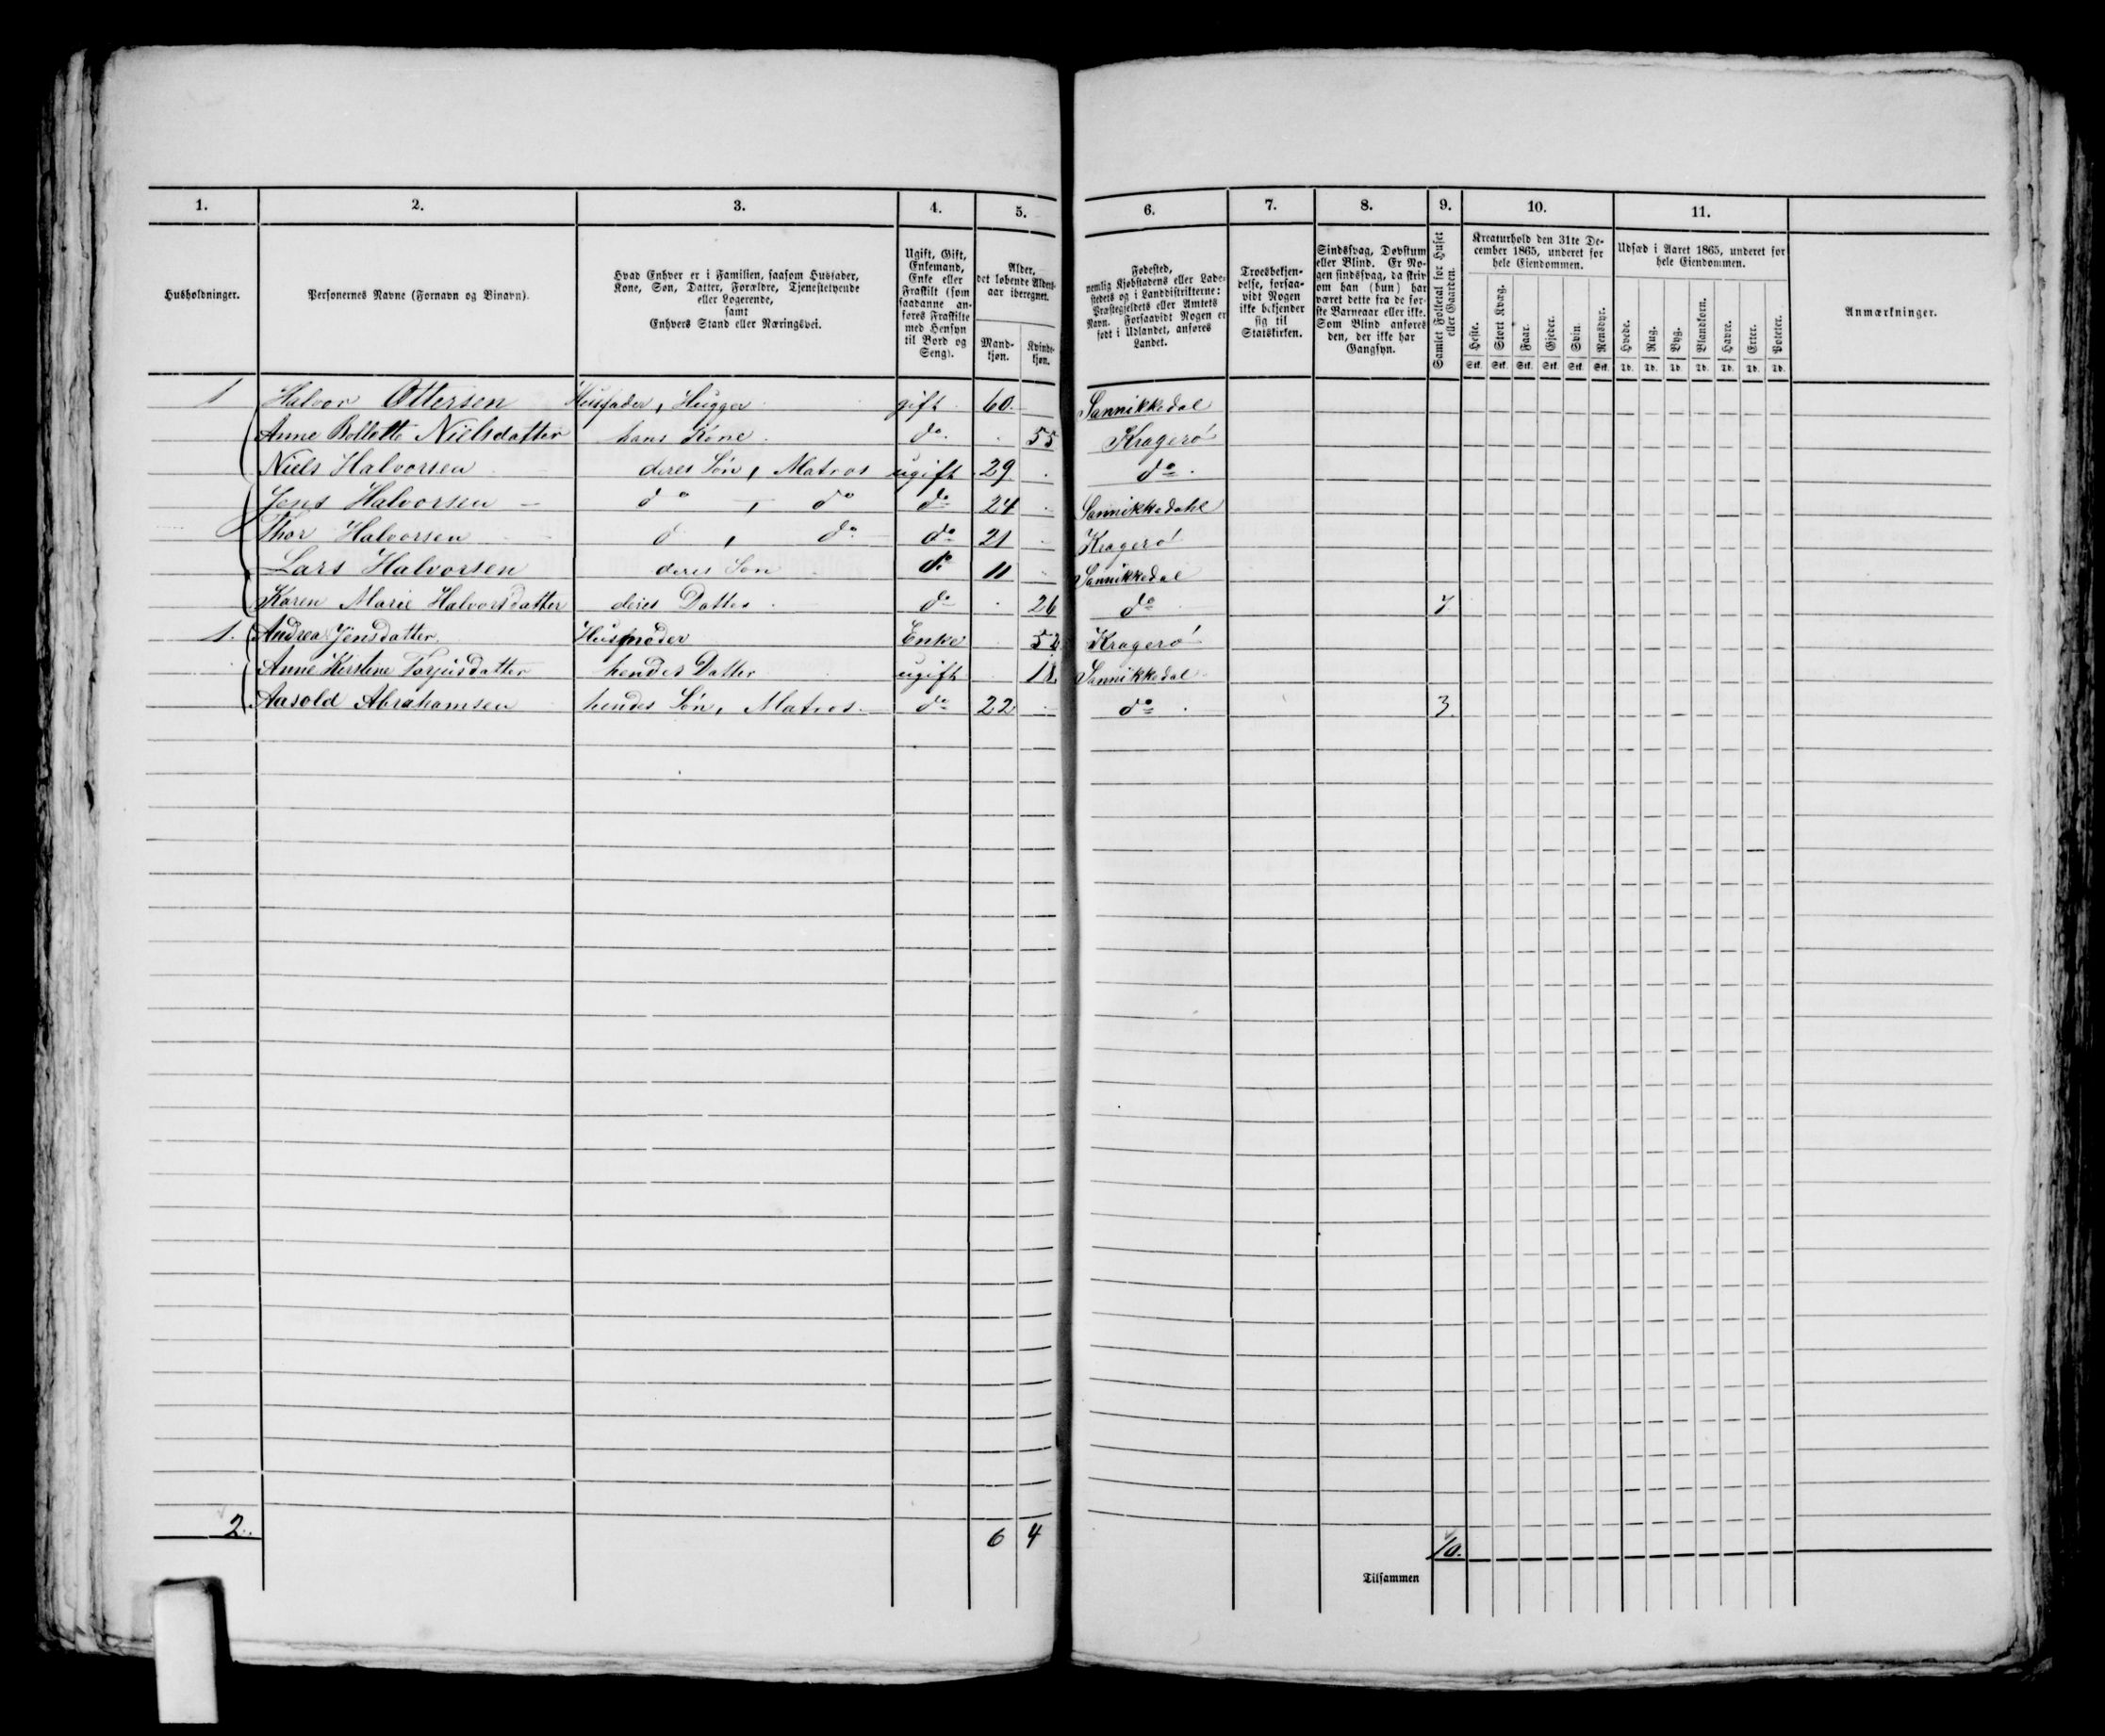 1. 2. 3. 4. 5. 6. 7. 8. 9. 10. 11.
Husholdninger.
Personernes Navne (Fornavn og Binavn).
Hvad Enhver er i Familien, saasom Husfader,
Kone, Søn, Datter, Forældre, Tjenestetyende
eller Logerende,
samt
Enhvers Stand eller Næringsvei.
Ugift, Gift,
Enkemand,
Enke eller
Fraskilt (som
saadanne an-
føres Fraskilte
med Hensyn
til Bord og
Seng).
Alder,
det løbende Alders-
aar iberegnet.
Mand-
kjøn.
Kvinde-
kjøn.
Fødested,
nemlig Kjøbstadens eller Lade-
stedets og i Landdistrikterne:
Præstegjeldets eller Amtets
Navn. Forsaavidt Nogen er
født i Udlandet, anføres
Landet.
Troesbekjen-
delse, forsaa-
vidt Nogen
ikke bekjender
sig til
Statskirken.
Sindssvag, Døvstum
eller Blind. Er No-
gen sindssvag, da skriv
om han (hun) har
været dette fra de før-
ste Barneaar eller ikke.
Som Blind anføres
den, der ikke har
Gangsyn.
Samlet Folketal for Huset
eller Gaarden.
Kreaturhold den 31te De-
cember 1865, underet for
hele Eiendommen.
Heste. Stort Kvæg. Faar. Gjeder. Svin. Rensdyr.
Stk. Stk. Stk. Stk. Stk. Stk.
Udsæd i Aaret 1865, underet for
hele Eiendommen.
Hvede. Rug. Byg. Blandkorn. Havre. Erter. Poteter.
Td. Td. Td. Td. Td. Td. Td.
Anmærkninger.
1 Halvor Ottersen Husfader, Hugger gift 60 Sannikkedal
Anne Bollette Nielsdatter hans Kone do 55 Kragerø
Niels Halvorsen deres Søn, Matros ugift 29 do
Jens Halvorsen do , do do 24 Sannikkedahl
Thor Halvorsen d , do do 21 Kragerø
Lars Halvorsen deres Søn do 11 Sannikkedal
Karen Marie Halvorsdatter deres Datter do 26 do 7
1. Andrea Jensdatter Husmoder Enke 52 Kragerø
Anne Kirstine Tarjeisdatter hendes Datter ugift Sannikkedal
Aasold Abrahamsen hendes Søn, Matros do 22 do 3
2. 6 4 10.
Tilsammen